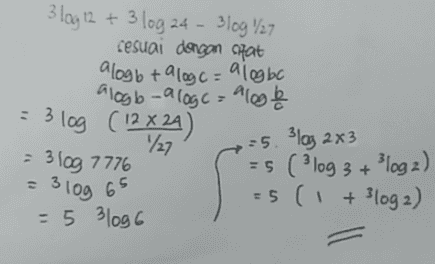 3log 12 + 3log 24 - 3log 1/27
sesuai dengan sifat
ᵃlog b + ᵃlog c = ᵃlog bc
ᵃlog b - ᵃlog c = ᵃlog b/c
= 3 log (12 x 24 / 1/27)
= 3log 7776
= ³log 6⁵
= 5 ³log 6
= 5. ³log 2x3
= 5 (³log 3 + ³log 2)
= 5 (1 + ³log 2)